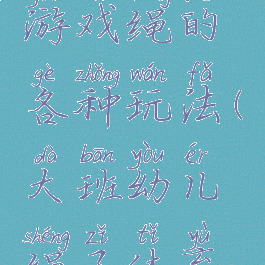 游戏绳的
gè zhǒng wán fǎ
各种玩法(
dà bān yòu ér
大班幼儿
shéng zǐ tǐ yù
绳子体育